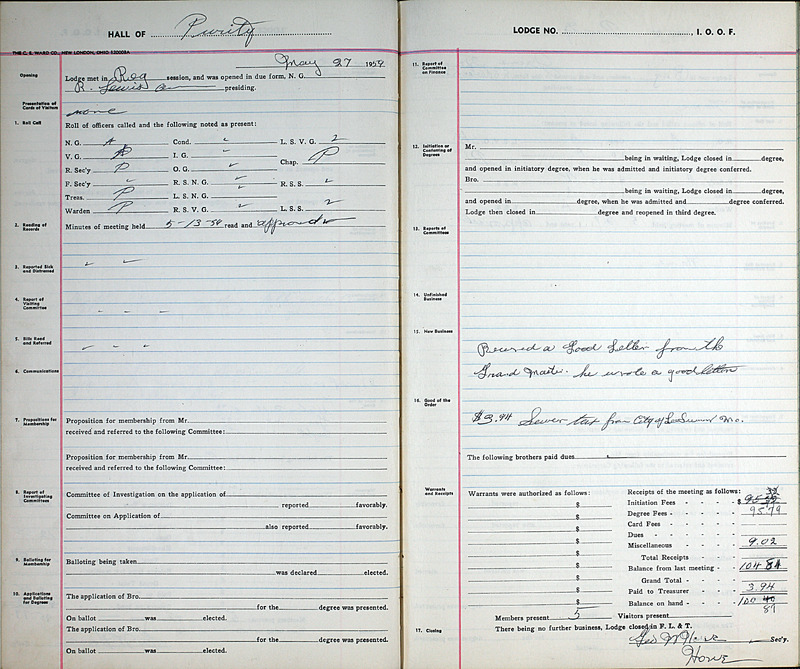 HALL OF Purity
THE C. E. WARD CO., NEW LONDON, OHIO
May 27 1959
Opening
Lodge met in Reg session, and was opened in due form, N. G.
R. Lewis presiding.
Presentation of Cards of Visitors
none
1. Roll Call
Roll of officers called and the following noted as present:
N. G. A Cond. L. S. V. G.
V. G. P I. G. Chap. P
R. Sec'y P O. G.
F. Sec'y R. S. N. G. R. S. S.
Treas. P L. S. N. G.
Warden P R. S. V. G. L. S. S.
2. Reading of Records
Minutes of meeting held 5-13-59 read and approved
3. Reported Sick and Distressed
4. Report of Visiting Committee
5. Bills Read and Referred
6. Communications
7. Propositions for Membership
Proposition for membership from Mr.
received and referred to the following Committee:
Proposition for membership from Mr.
received and referred to the following Committee:
8. Report of Investigating Committees
Committee of Investigation on the application of
reported favorably.
Committee on Application of
also reported favorably.
9. Balloting for Membership
Balloting being taken
was declared elected.
10. Applications and Balloting for Degrees
The application of Bro.
for the degree was presented.
On ballot was elected.
The application of Bro.
for the degree was presented.
On ballot was elected.
LODGE NO. , I. O. O. F.
11. Report of Committee on Finance
12. Initiation or Conferring of Degrees
Mr.
being in waiting, Lodge closed in degree,
and opened in initiatory degree, when he was admitted and initiatory degree conferred.
Bro.
being in waiting, Lodge closed in degree,
and opened in degree, when he was admitted and degree conferred.
Lodge then closed in degree and reopened in third degree.
13. Reports of Committees
14. Unfinished Business
15. New Business
Received a Good Letter from the
Grand Master. he wrote a good letter
16. Good of the Order
$3.94 Sewer from City of Mo.
The following brothers paid dues
Warrants and Receipts
Warrants were authorized as follows:
$
$
$
$
$
$
$
$
Receipts of the meeting as follows:
Initiation Fees $
Degree Fees 95 79
Card Fees
Dues
Miscellaneous 9.02
Total Receipts
Balance from last meeting 104 81
Grand Total
Paid to Treasurer 3.94
Balance on hand 100
87
Members present 5 Visitors present
17. Closing
There being no further business, Lodge closed in F. L. & T.
Geo W Howe Sec'y.
Howe